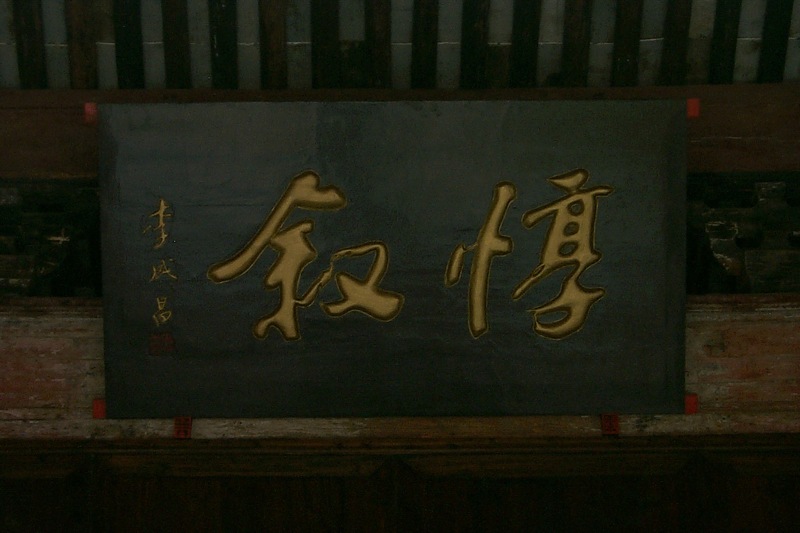 惇叙
李成昌